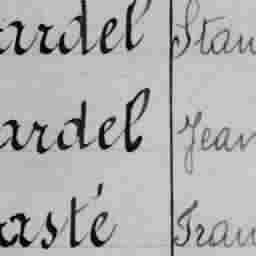 ardel Stan
ardel Jean
asté Fran